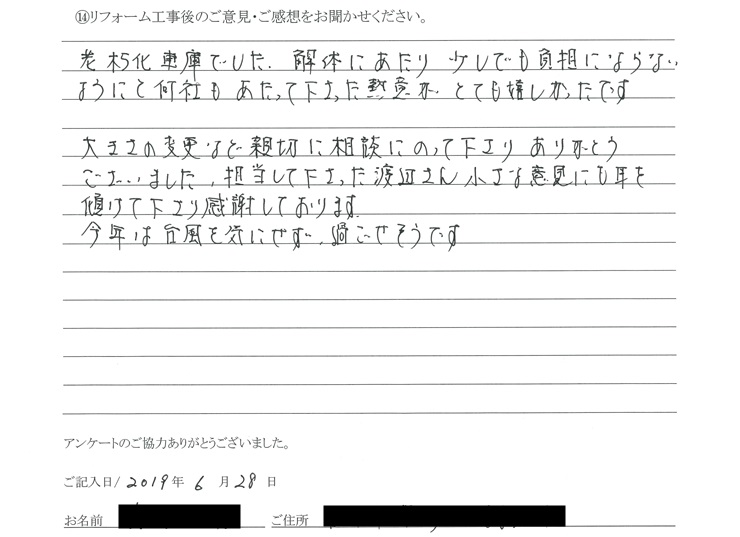 ⑭リフォーム工事後のご意見・ご感想をお聞かせください。
老朽化車庫でした. 解体にあたり 少しでも負担にならない
ようにと何社も あたって下さった熱意が とても嬉しかったです
大きさの変更など親切に相談にのって下さり ありがとう
ございました, 担当して下さった渡辺さん小さな意見にも耳を
傾けて下さり感謝しております.
今年は台風を気にせず, 過ごせそうです
アンケートのご協力ありがとうございました。
ご記入日/ 2019年 6 月 28 日
お名前 ご住所